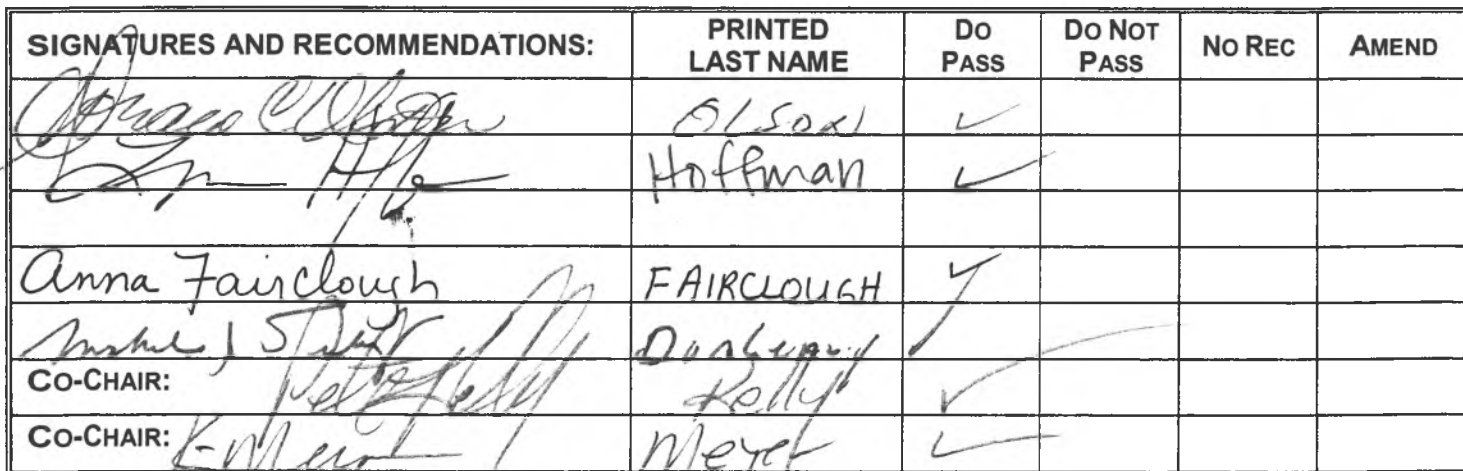 SIGNATURES AND RECOMMENDATIONS: PRINTED LAST NAME DO PASS DO NOT PASS NO REC AMEND
OLSON ✓
Hoffman ✓
Anna Fairclough FAIRCLOUGH ✓
Dunleavy
CO-CHAIR: Pete Kelly Kelly ✓
CO-CHAIR: K Meyer Meyer ✓